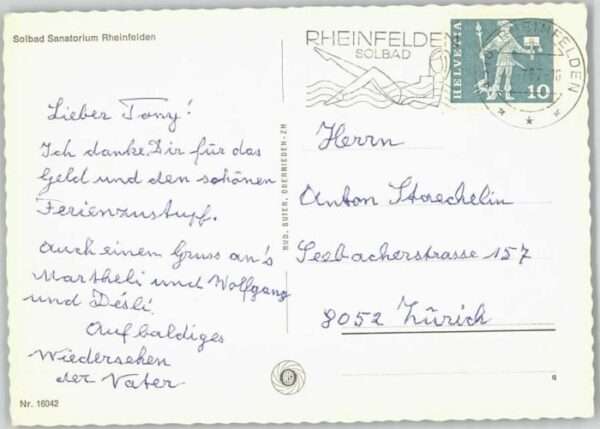 Solbad Sanatorium Rheinfelden
Lieber Tony!
Ich danke Dir für das
Geld und den schönen
Ferienzustupf.
Auch einen Gruss an's
Martheli und Wolfgang
und Désli.
Auf baldiges
Wiedersehen
der Vater
Nr. 16042
RUD. SUTER, OBERRIEDEN-ZH
RHEINFELDEN
SOLBAD
HELVETIA
10
RHEINFELDEN
Herrn
Anton Stoechelin
Seebacherstrasse 157
8052 Zürich